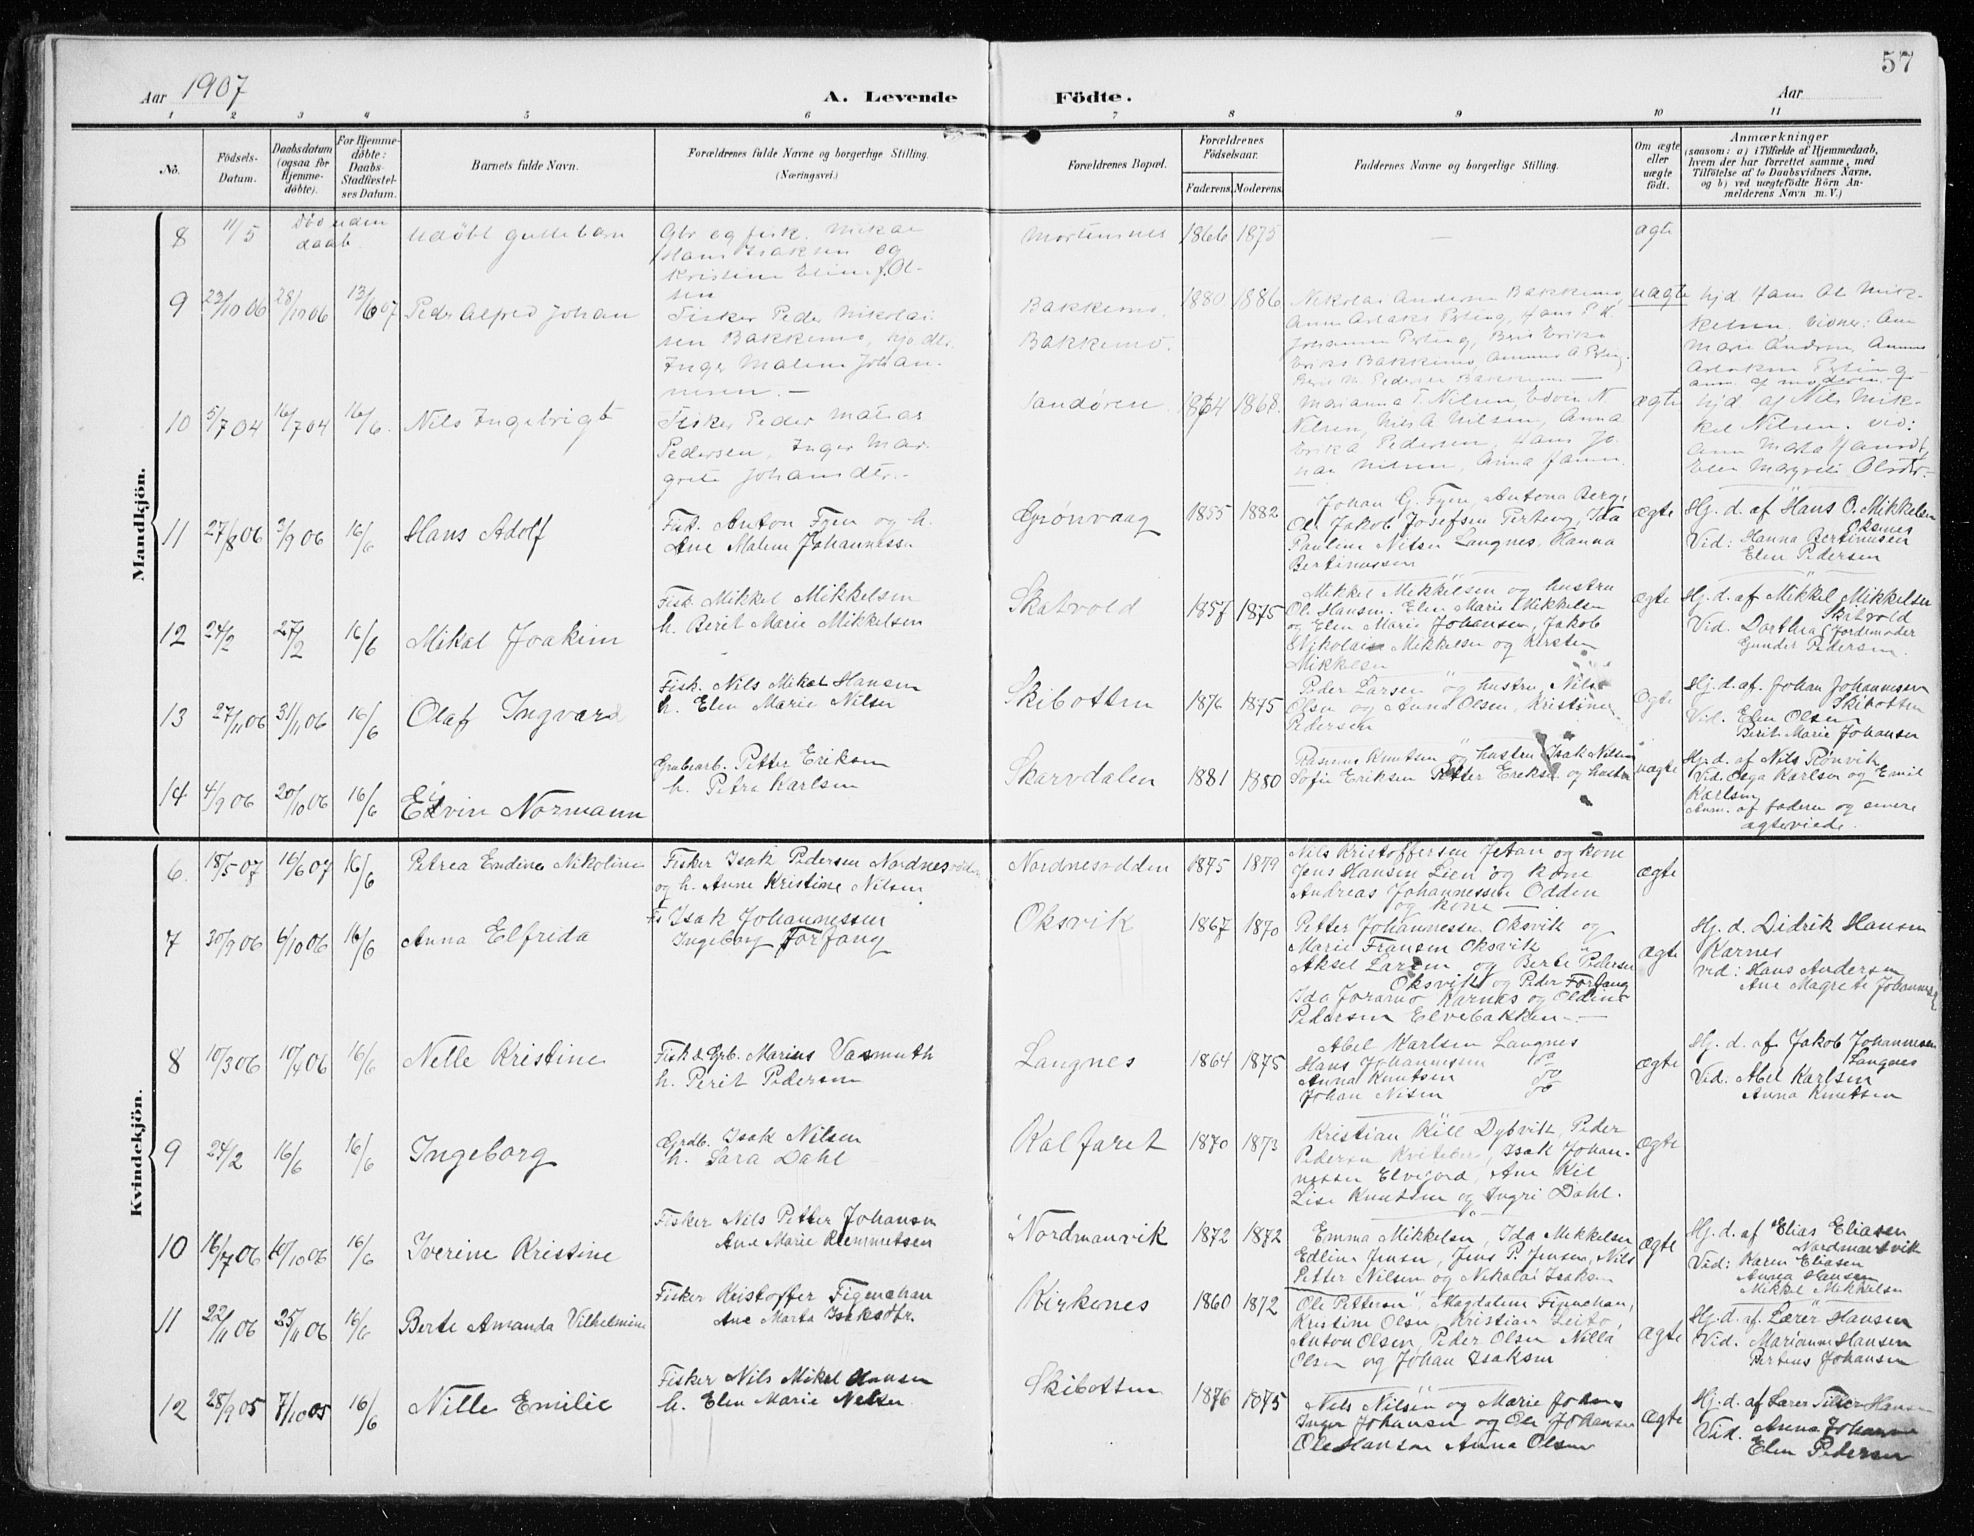 57
Aar 1907 A. Levende Födte. Aar
1 2 3 4 5 6 7 8 9 10 11
No.
Födsels-Datum.
Daabsdatum (ogsaa for Hjemme-döbte).
For Hjemme-döbte: Daabs-Stadfæstel-ses Datum.
Barnets fulde Navn.
Forældrenes fulde Navne og borgerlige Stilling.
(Næringsvei.)
Forældrenes Bopæl.
Forældrenes Födselsaar.
Faderens. Moderens.
Faddernes Navne og borgerlige Stilling.
Om ægte eller uægte födt.
Anmærkninger
(saasom: a) i Tilfælde af Hjemmedaab,
hvem der har forrettet samme, med
Tilföielse af to Daabsvidners Navne,
og b) ved uægtefödte Börn An-
melderens Navn m. V.)
Mandkjön.
8 11/5 Død uden daab. Udøbt guttebarn
Gbr og fisk. Mikal
Hans Isaksen og
Kristine Eline f. Ol-
sen
Mortensnes 1866 1875 — ægte
9 23/10 06 28/10 06 13/6 07 Peder Alfred Johan
Fisker Peder Nikolai
sen Bakkemo,
Inger Malene Johan-
nesen. —
Bakkemo.
Bakkemo.
1880 1886
Nikolai Andersen Bakkemo,
uægte
hjd. Hans Ol. Mik-
kelsen. Vidner: Ane
Marie Andersen,
anm. af moderen
10 5/7 04 16/7 04 16/6. Nils Ingebrigt
Fisker Peder Matias
Pedersen, Inger Mar-
grete Johansdtr.
Sandøren. 1864 1868.
Marianna T. Nilsen, Edvin N.
Nilsen, Nils A Nilsen, Anna
Erika Pedersen, Hans Jo-
han Nilsen, Anna
ægte
hjd af Nils Mik-
kel Nilsen. Vid:
Ane Marta
Elen Margrete Olsdtr.
11 27/8 06 2/9 06 16/6 Hans Adolf
Fisk. Anton Fyen og h.
Ane Malene Johannessen
Grønvaag 1855 1882
Johan G. Fyen, Antona Berg,
Ole Jakob Josefsen Perteng, Ida
Pauline Nilsen Langnes, Hanna
Bertinussen
ægte
Hj. d. af Hans O. Mikkelsen
Oksnes
Vid: Hanna Bertinusen
Elen Pedersen
12 24/2 27/2 16/6 Mikal Joakim
Fisk. Mikkel Mikkelsen
h. Berit Marie Mikkelsen
Skatvold 1857 1875
Mikkel Mikkelsen og hustru
Ole Hansen. Elen Marie Mikkelsen
og Elen Marie Johansen, Jakob
Nikolai Mikkelsen og Kirsten
Mikkelsen
ægte
Hj. d. af Mikkel Mikkelsen
Skatvold
Vid. Dorthea (Jordemoder
Gunder Pedersen.
13 27/11 06 31/11 06 16/6 Olaf Ingvard
Fisk. Nils Mikal Hansen
h. Elen Marie Nilsen
Skibotten 1876 1875
Peder Larsen og hustru, Nils
Olsen og Anna Olsen, Kristine
Pedersen
Ægte
Hj. d. af. Johan Johannesen
Skibotten
Vid. Elen Olsen
Berit Marie Johansen
14 4/9 06 20/10 06 16/6 Edvin Normann
Grubearb. Petter Eriksen
h. Petra Karlsen
Skarvdalen 1881 1880
Rasmus Knutsen og hustru Isak Nilsen
Sofie Eriksen Petter Eriksen og hustru
uægte
Hj. d. af Nils Rønvik
Vid. Olga Karlsen og Emil
Karlsen
Anm. af faderen og senere
ægteviede.
Kvindekjön.
6. 18/5 07 16/6 07 16/6 Petrea Emdine Nikoline
Fisker Isak Pedersen Nordnesodden
og h. Anne Kristine Nilsen
Nordnesodden 1875 1879
Nils Kristoffersen Jetan og kone
Jens Hansen Lien og kone
Andreas Johannessen Odden
og kone —
ægte
7 30/9 06 6/10 06 16/6 Anna Elfrida
Fis Isak Johannessen
Ingeborg Forfang
Oksvik 1867 1870
Petter Johannessen Oksvik og
Marie Fransen Oksvik
Aksel Larsen og Berte Pedersen
Oksvik og Peder Forfang
Ida Joramo Karnes og Oldine
Pedersen Elvebakken —
ægte
Hj. d. Didrik Hansen
Karnes
vid: Hans Andersen
Ane Magrete Johannes
8 10/3 06 10/4 06 16/6 Nelle Kristine
Fisk & Grb. Marius Vasmuth
h. Perit Pedersen
Langnes 1864 1875
Abel Karlsen Langnes
Hans Johannessen do
Anna Knutsen do
Johan Nilsen do
ægte
Hj. d. af Jakob Johannesen
Langnes
Vid: Abel Karlsen
Anna Knutsen
9 24/2 16/6 16/6 Ingeborg
Grdb. Isak Nilsen
h. Sara Dahl
Kalfaret 1870 1873
Kristian Kill Dybvik, Peder
Pedersen Kviteberg, Isak Johan-
nessen Elvejord, Ane Kil
Lise Knutsen og Ingri Dahl.
ægte
10 16/7 06 10/10 06 16/6 Iverine Kristine
Fisker Nils Petter Johansen
Ane Marie Klemmetsen
Nordmanvik 1872 1872
Emma Mikkelsen, Ida Mikkelsen
Edline Jensen, Jens P. Jensen, Nils
Petter Nilsen og Nikolai Isaksen
ægte
Hj. d. af Elias Eliasen
Nordmanvik
Vid: Karen Eliasen
Anna Hansen
Mikkel Mikkelsen
11 22/11 06 25/11 06 16/6 Berte Amanda Vilhelmine
Fisker Kristoffer Figenahan
Ane Marta Isaksdtr.
Kirkenes 1860 1872
Ole Pettersen, Magdalene Finnehan,
Kristine Olsen, Kristian Leito,
Anton Olsen, Peder Olsen Nilla
Olsen og Johan Isaksen
ægte
Hj. d. af. Lærer Hansen
Vid. Marianne Hansen
Pertus Johansen
12 28/9 05 7/10 05 16/6 Nille Emilie
Fisker Nils Mikal Hansen
h. Elen Marie Nilsen
Skibotten 1876 1875
Nils Nilsen og Marie Johans
Inger Johansen og Ole Johansen
Ole Hansen Anna Olsen
ægte
Hj. d. af Lærer Hansen
Vid. Anna Johanne
Elen Pedersen